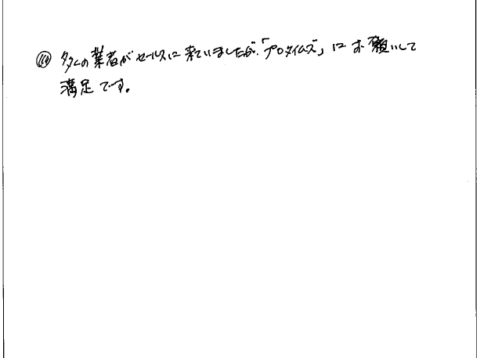 多くの業者がセールスに来ていましたが、「プロタイムズ」にお願いして
満足です。